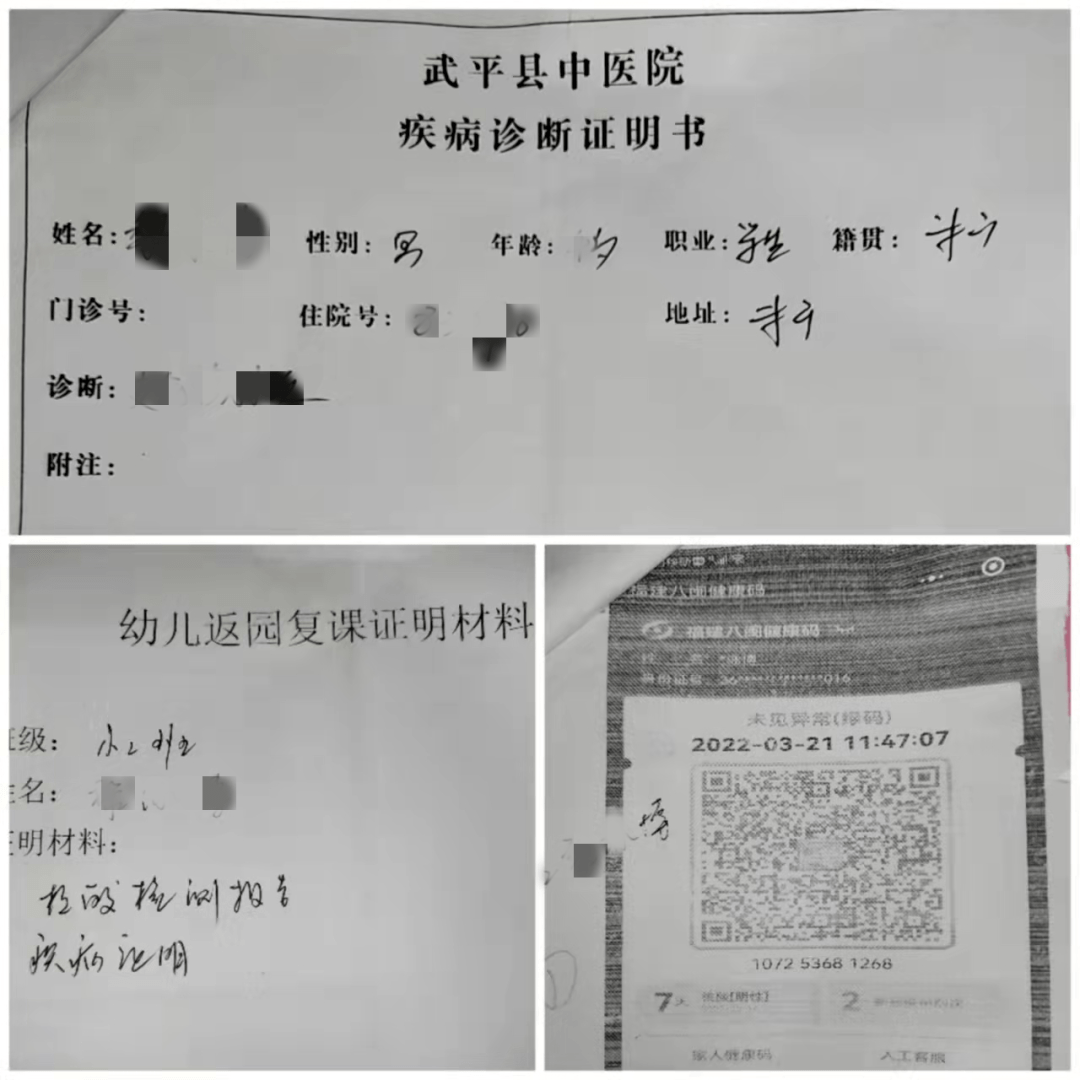 武平县中医院
疾病诊断证明书
姓名: 性别: 男 年龄: 岁 职业: 学生 籍贯:
门诊号: 住院号: 地址:
诊断:
附注:
幼儿返园复课证明材料
级: 小2班
名:
明材料:
核酸检测报告
疾病证明
福建八闽健康码
福建八闽健康码
身份证号 36************016
未见异常(绿码)
2022-03-21 11:47:07
博
1072 5368 1268
7天 核酸[阴性]
2
家人健康码 人工客服